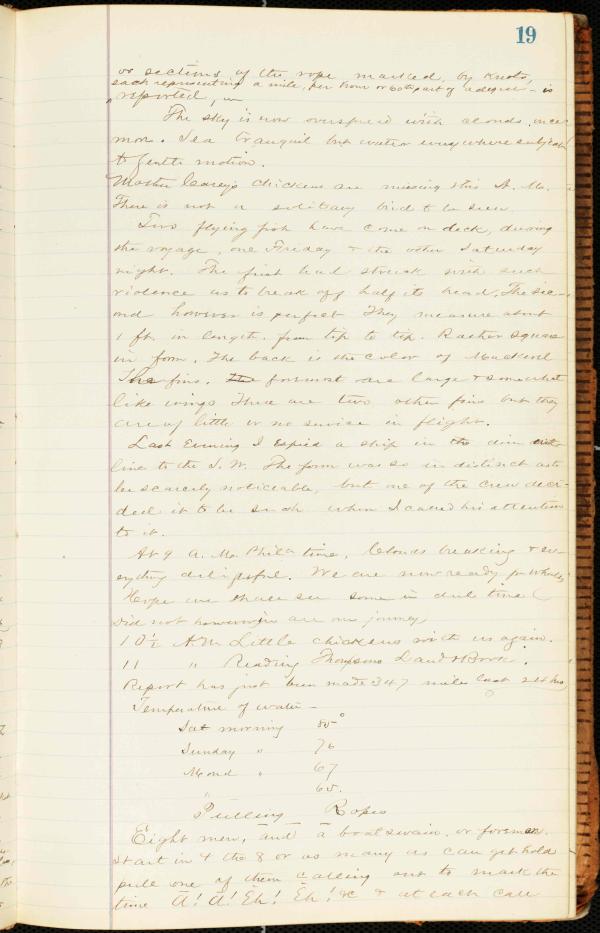 19
or sections of the rope marked, by Knots,
each representing a mile, per hour or 60th part of a degree - is
reported,
The sky is now overspread with clouds once
more. Sea tranquil but water every where subject
to gentle motion.
Mother Carey's Chickens are missing this A. M.
There is not a solitary bird to be seen
Two flying fish have come on deck, during
the voyage, one Friday & the other Saturday
night. The first had struck with such
violence as to break off half its head. The sec-
ond however is perfect They measure about
1 ft. in length. from tip to tip. Rather square
in form. The back is the color of Mackerel
The fins. The formost are large & somewhat
like wings There are two other fins but they
are of little or no service in flight.
Last Evening I Espied a ship in the dim out
line to the S. W. The form was so in distinct as to
be scarcely noticeable, but one of the crew deci-
ded it to be such when I called his attention
to it.
At 9 A. M. Phila time. Clouds breaking & ev-
erything delightful. We are now ready for Whales
Hope we shall see some in due time (
Did not however in our journey
10½ A.M Little chickens with us again.
11 " Reading Thompsons Land & Book.
Report has just been made 347 miles last 24 hrs
Temperature of water -
Sat morning 80°
Sunday " 76
Mond " 67
" 60.
Pulling Ropes
Eight men, and a boatswain. or foreman.
start in & the 8 or as many as can get hold
pull one of them calling out to mark the
time A! A! Eh! Eh! &c & at each call